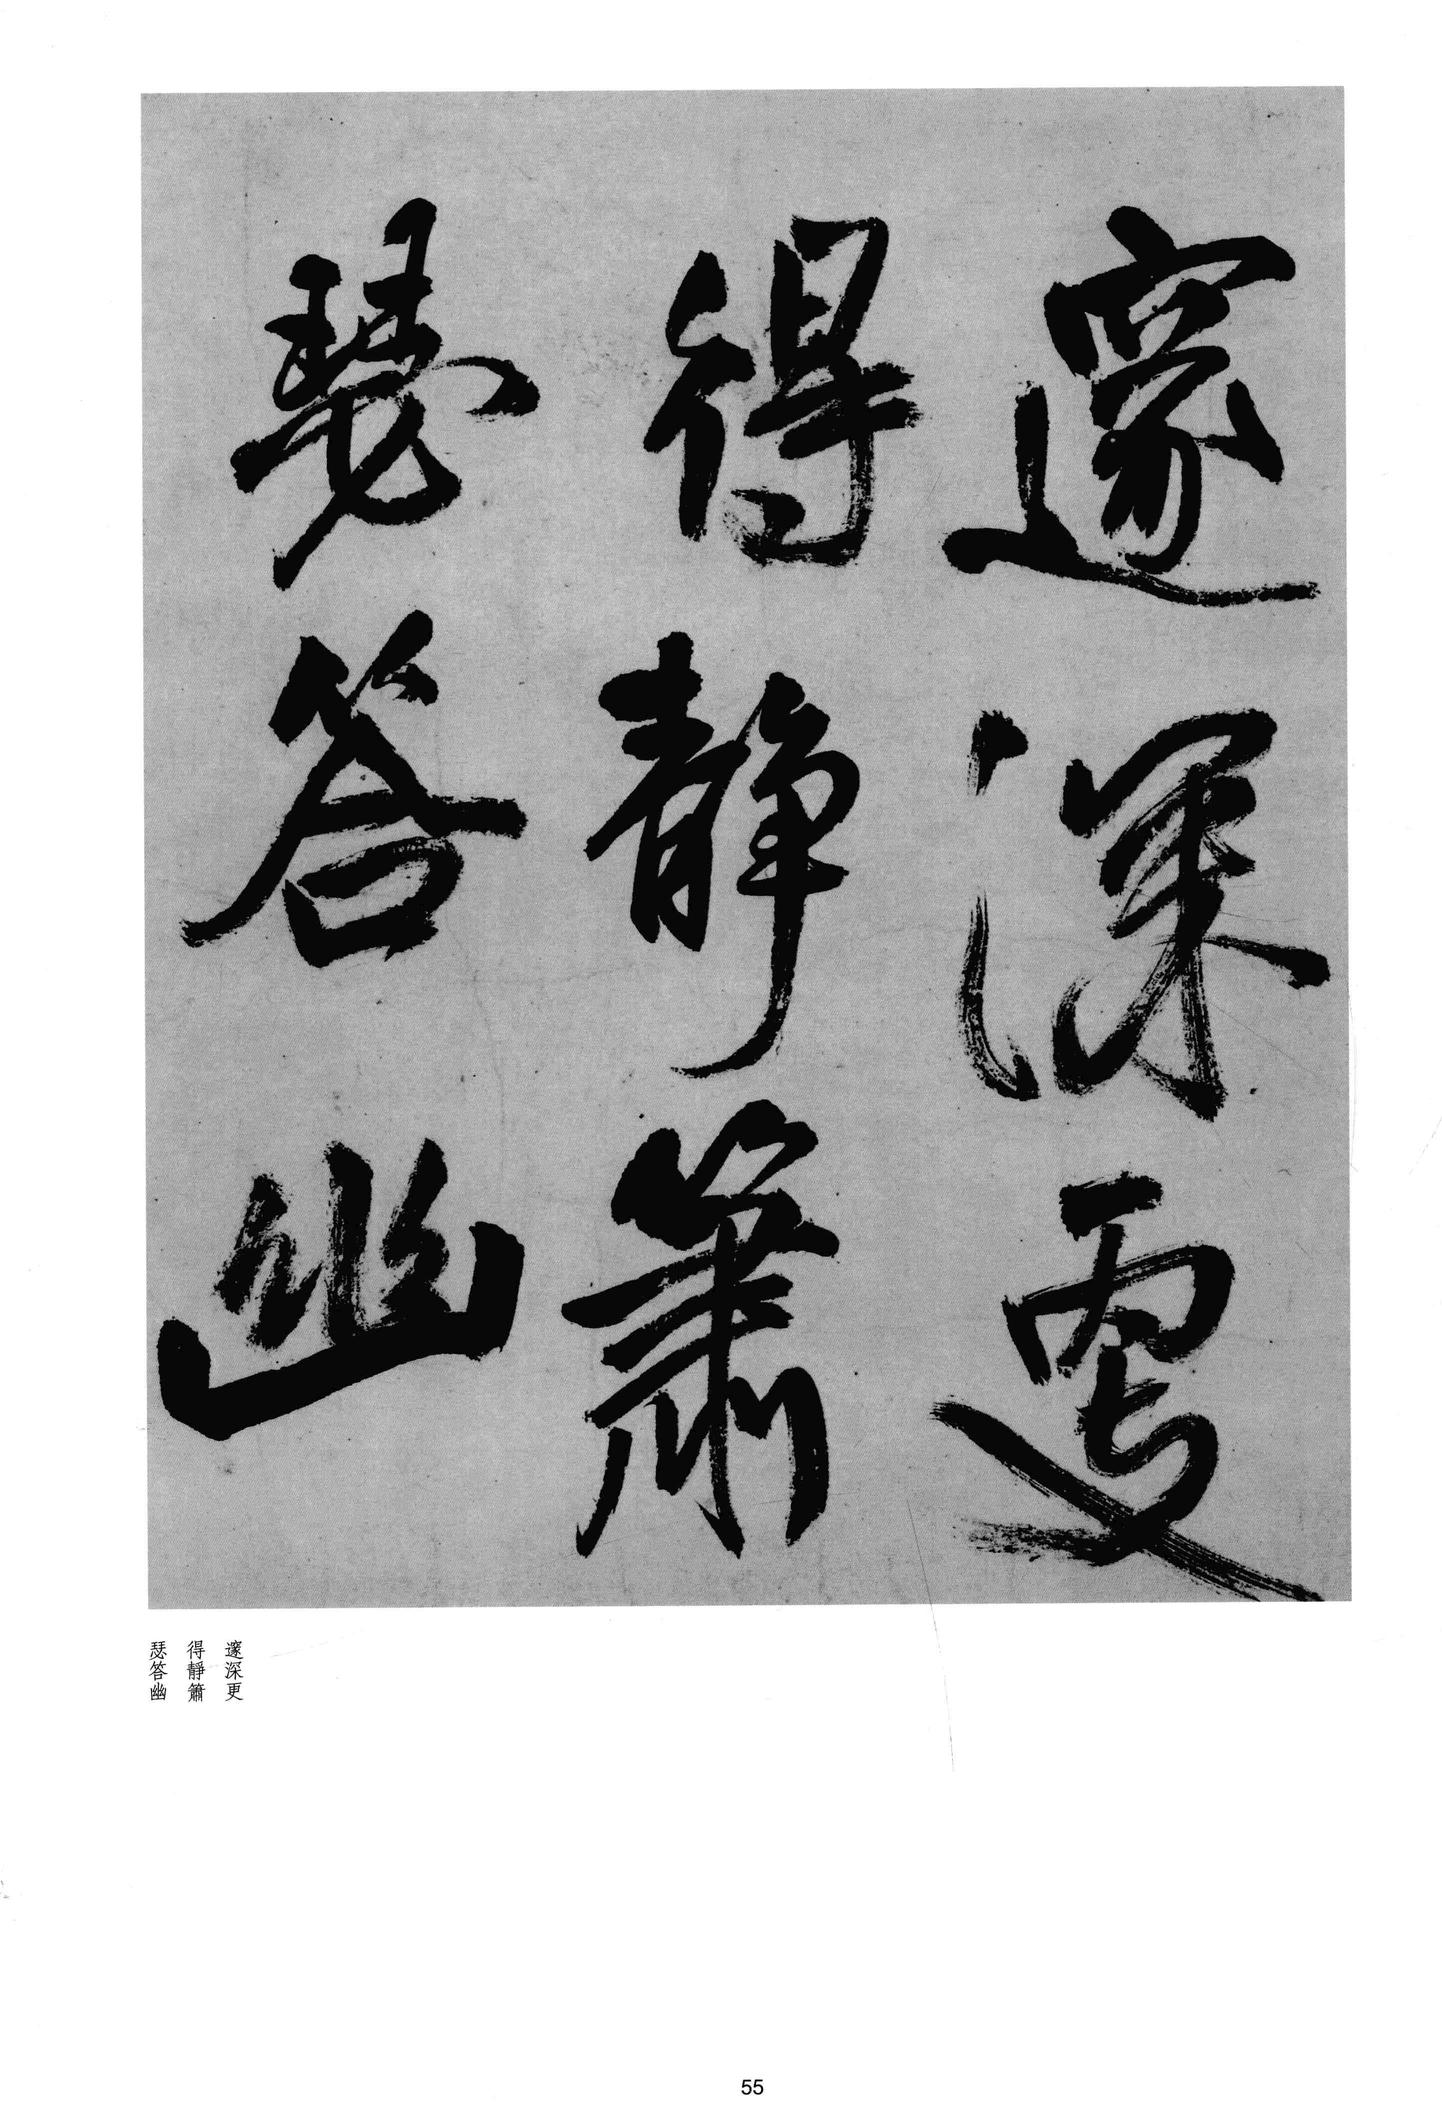 邃深更
得靜簫
瑟答幽
邃深更
得靜簫
瑟答幽
55